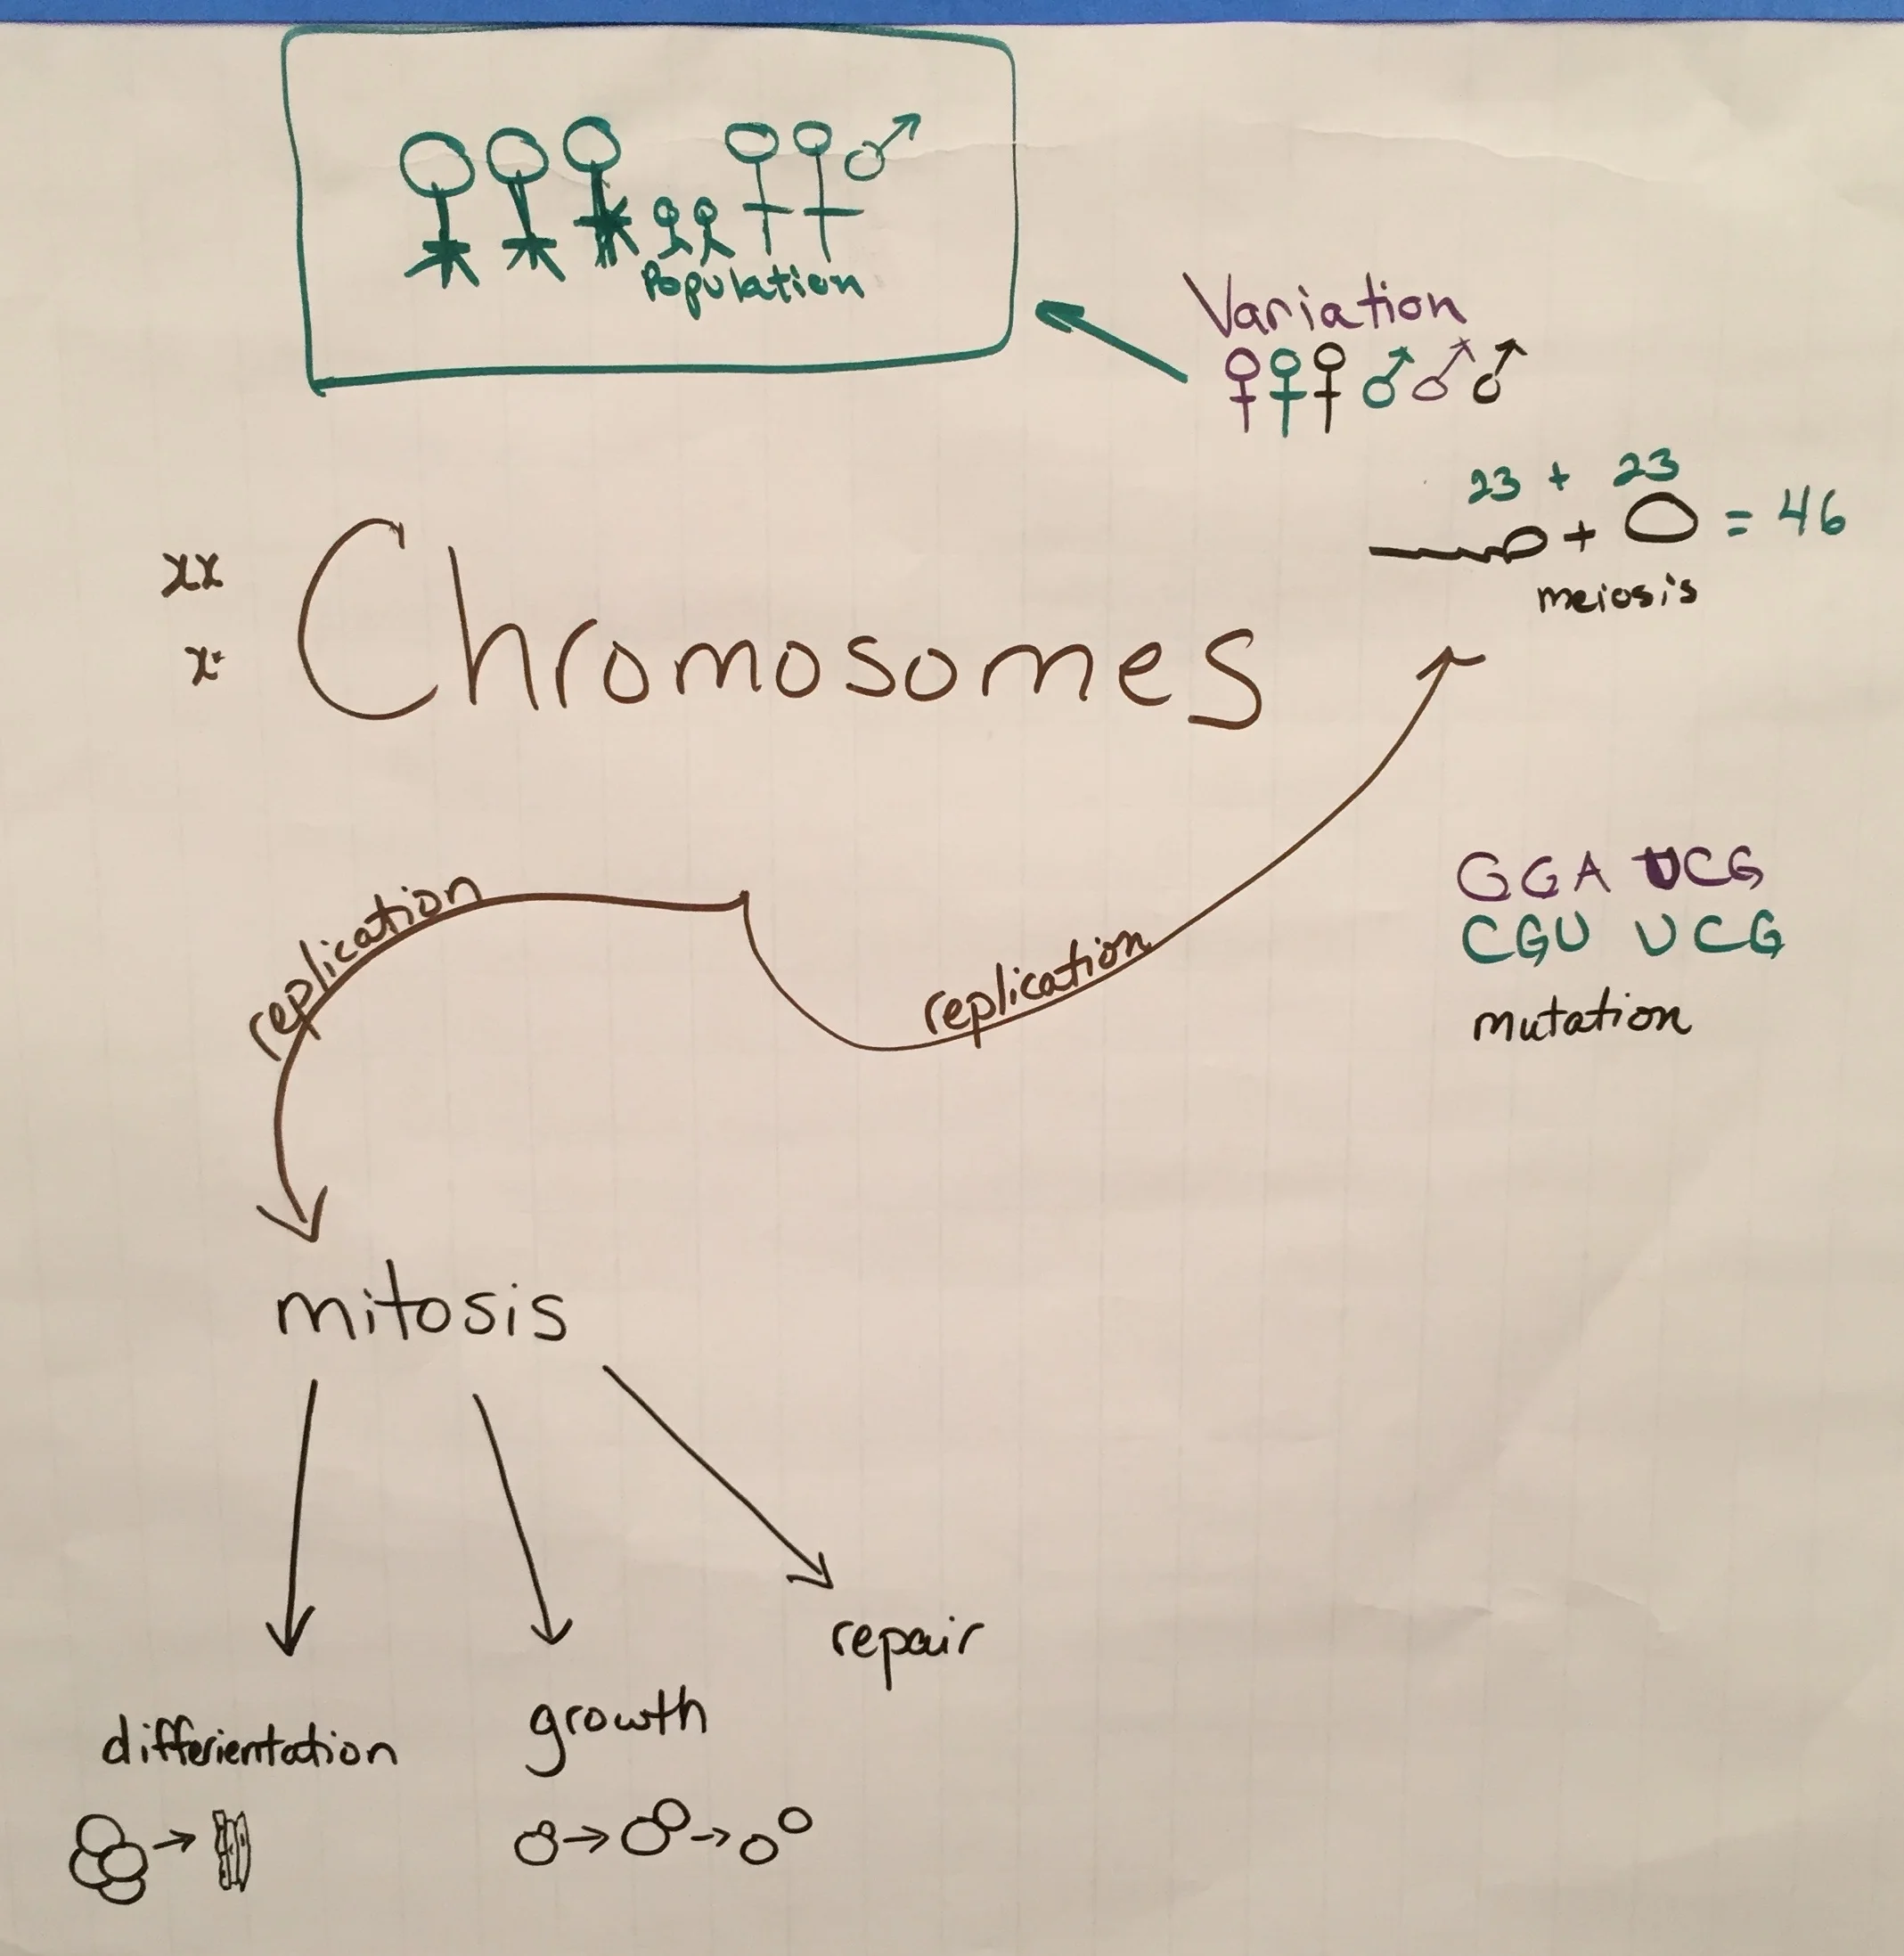 Population
Variation
23 + 23
+ = 46
meiosis
xx
x
Chromosomes
GGA UCG
CGU UCG
mutation
replication
replication
mitosis
repair
growth
differientation